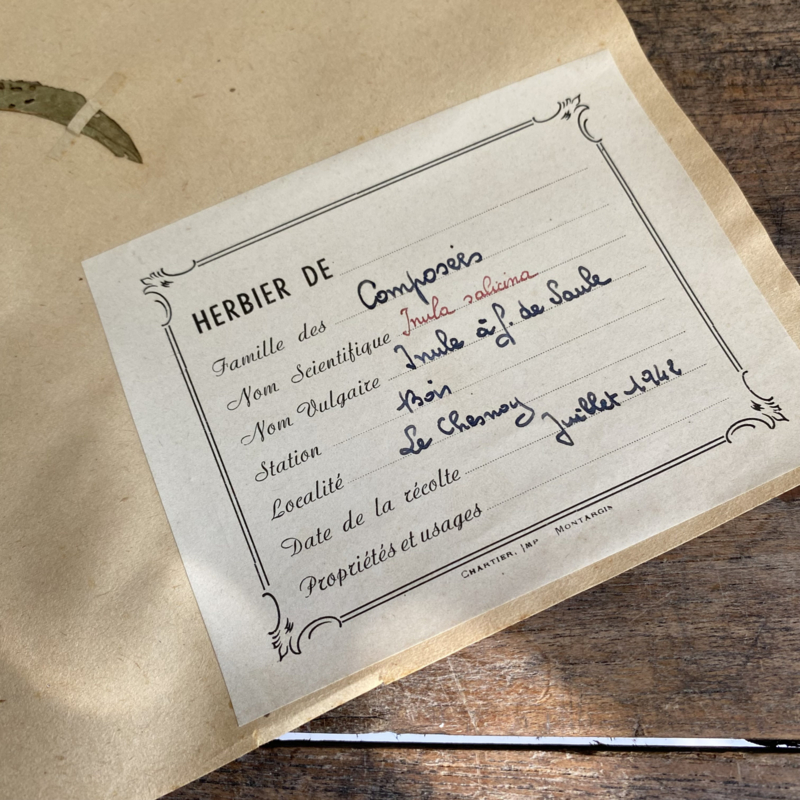 HERBIER DE
Famille des Composées
Nom Scientifique Inula salicina
Nom Vulgaire Inule à f. de Saule
Station Bois
Localité Le Chesnoy
Date de la récolte Juillet 1942
Propriétés et usages
CHARTIER, IMP MONTARGIS